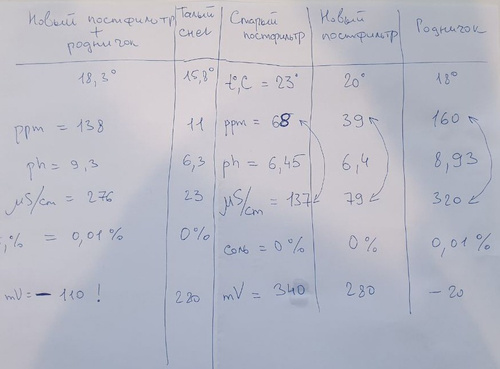 Новый постфильтр + родничок | Талый снег | Старый постфильтр | Новый постфильтр | Родничок
18,3° | 15,8° | t°,C = 23° | 20° | 18°
ppm = 138 | 11 | ppm = 68 | 39 | 160
ph = 9,3 | 6,3 | ph = 6,45 | 6,4 | 8,93
μS/cm = 276 | 23 | μS/cm = 137 | 79 | 320
,% = 0,01% | 0% | соль = 0% | 0% | 0,01%
mV = - 110 ! | 280 | mV = 340 | 280 | - 20